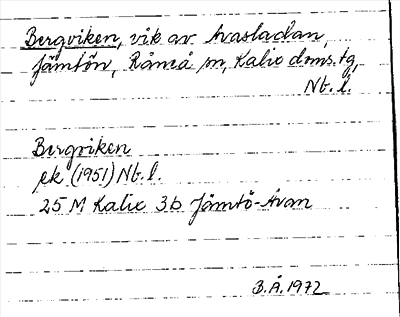 Bergviken, vik av Avasladan,
Jämtön, Råneå sn, Kalix doms.tg,
Nb. l.
Bergviken
ek (1951) Nb. l.
25 M Kalix 3b Jämtö-Avan
B.Å. 1972